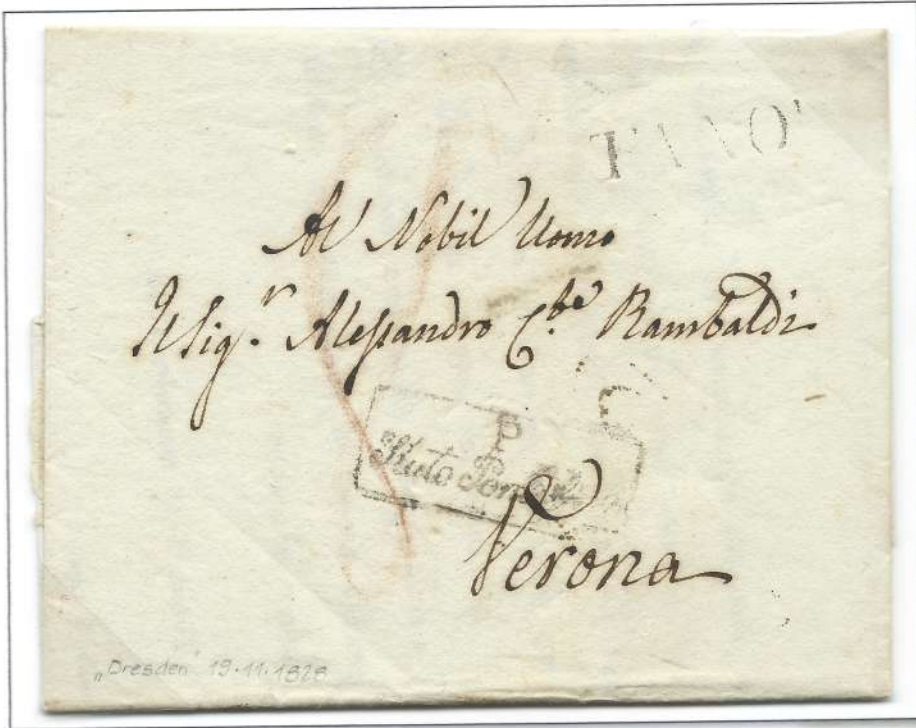 Al Nobil Uomo
Il Sig.r Alessandro C.te Rambaldi
P
Stato
Verona
„Dresden" 19.11.1828